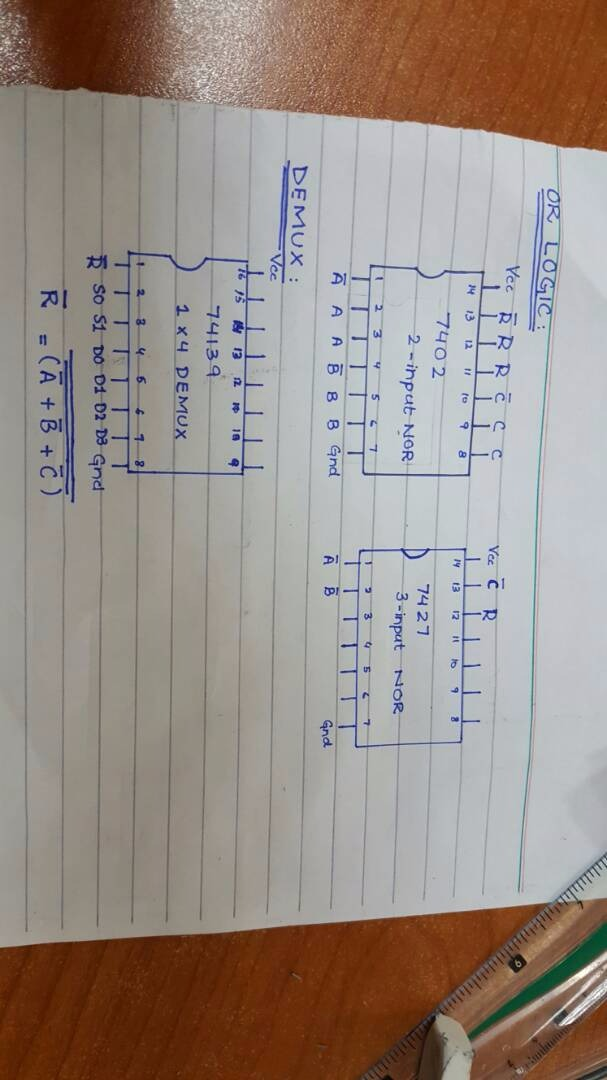 OR LOGIC:
Vcc R̅ R R C̅ C C
14 13 12 11 10 9 8
7402
2-input NOR
1 2 3 4 5 6 7
A̅ A A B̅ B B Gnd
Vcc C̅ R
14 13 12 11 10 9 8
7427
3-input NOR
1 2 3 4 5 6 7
A̅ B̅ Gnd
DEMUX:
Vcc
16 15 13 12 9
74139
1x4 DEMUX
1 2 3 4 5 6 7 8
R̅ S0 S1 D0 D1 D2 D3 Gnd
R̅ = (A̅ + B̅ + C̅)
6